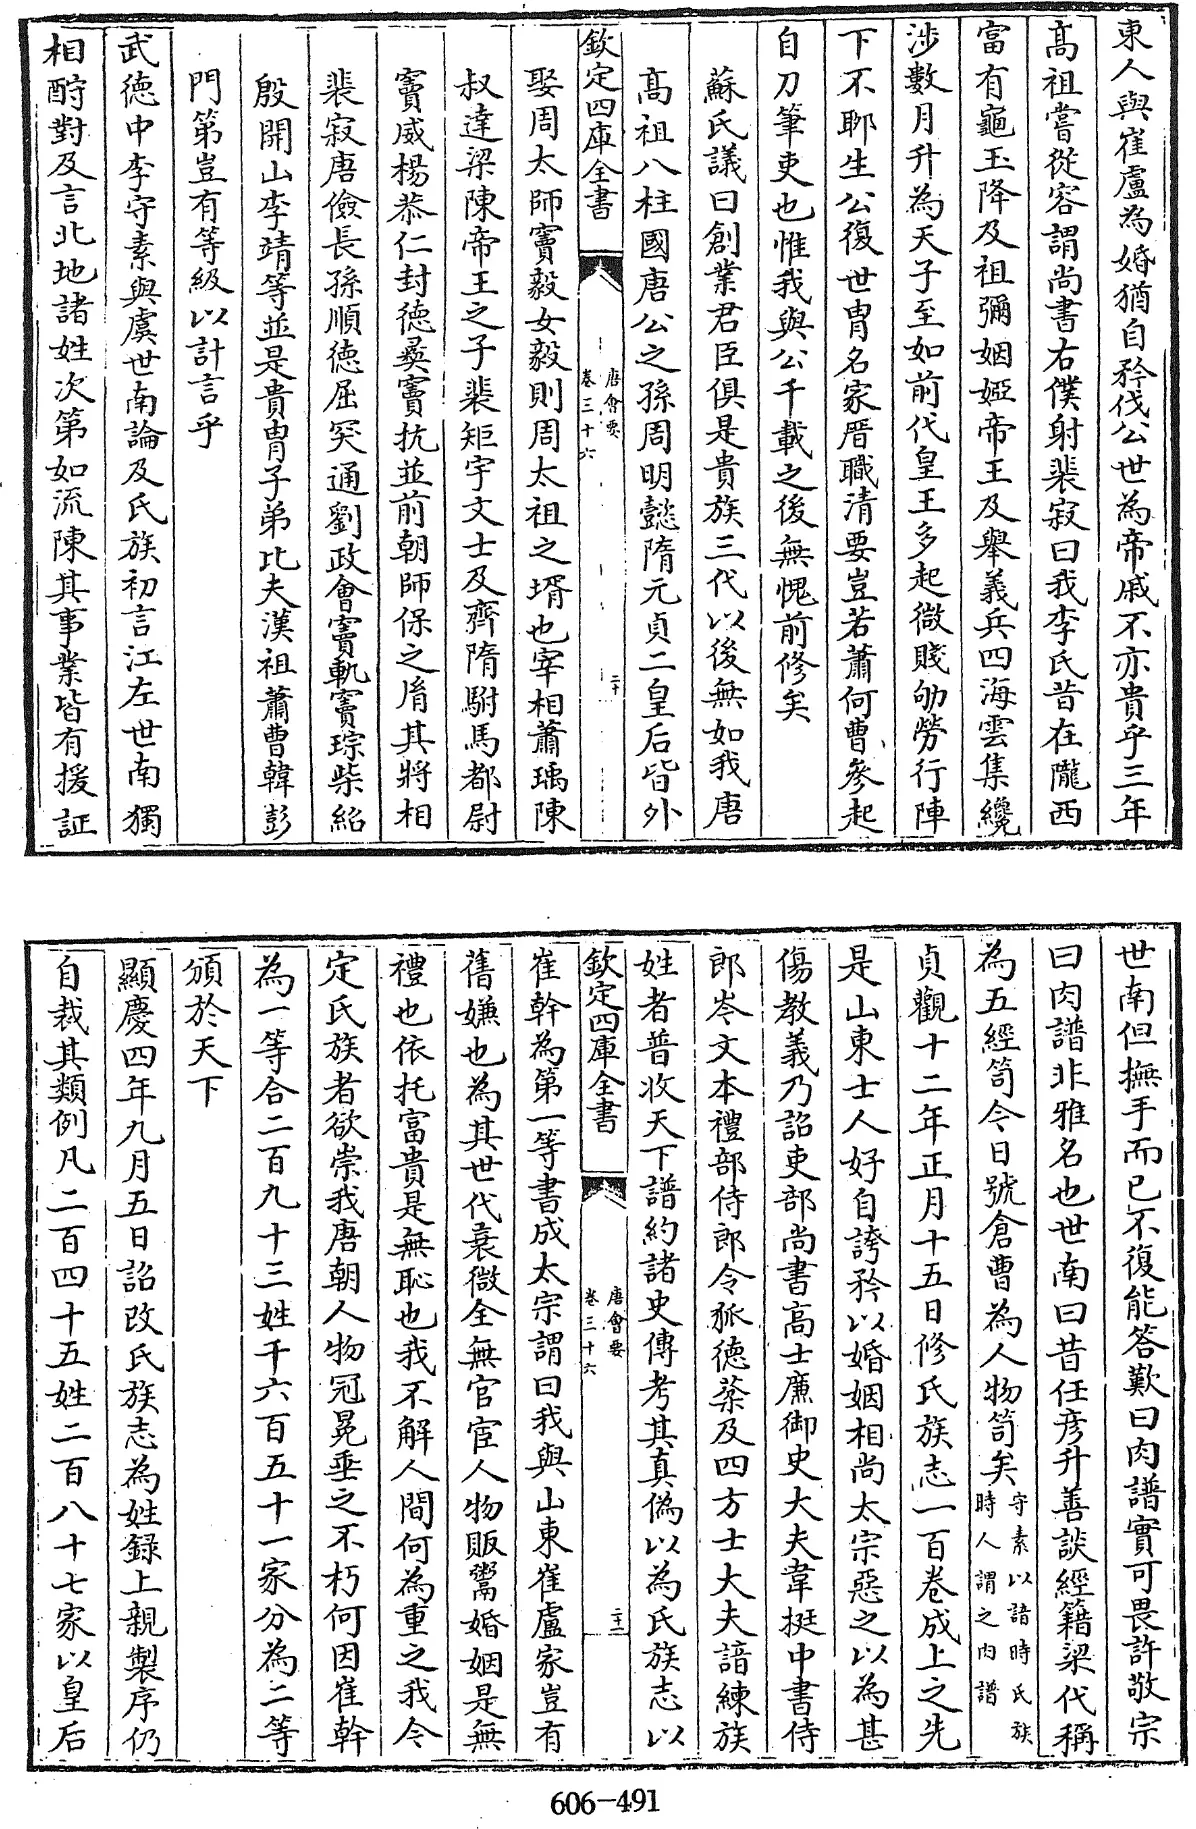 東人與崔盧為婚猶自矜伐公世為帝戚不亦貴乎三年
髙祖嘗從容謂尚書右僕射裴寂曰我李氏昔在隴西
富有龜玉降及祖彌姻婭帝王及舉義兵四海雲集纔
涉數月升為天子至如前代皇王多起微賤劬勞行陣
下不聊生公復世胄名家歴職清要豈若蕭何曹參起
自刀筆吏也惟我與公千載之後無愧前修矣
蘇氏議曰創業君臣俱是貴族三代以後無如我唐
髙祖八柱國唐公之孫周明懿隋元貞二皇后皆外
欽定四庫全書
唐會要
卷三十六
二十
娶周太師竇毅女毅則周太祖之壻也宰相蕭瑀陳
叔達梁陳帝王之子裴矩宇文士及齊隋駙馬都尉
竇威楊恭仁封徳彞竇抗並前朝師保之裔其將相
裴寂唐儉長孫順徳屈突通劉政會竇軌竇琮柴紹
殷開山李靖等並是貴胄子弟比夫漢祖蕭曹韓彭
門第豈有等級以計言乎
武徳中李守素與虞世南論及氏族初言江左世南獨
相酧對及言北地諸姓次第如流陳其事業皆有援証
世南但撫手而已不復能答歎曰肉譜實可畏許敬宗
曰肉譜非雅名也世南曰昔任彦升善談經籍梁代稱
為五經笥今日號倉曹為人物笥矣守素以諳時氏族時人謂之肉譜
貞觀十二年正月十五日修氏族志一百卷成上之先
是山東士人好自誇矜以婚姻相尚太宗惡之以為甚
傷教義乃詔吏部尚書髙士廉御史大夫韋挺中書侍
郎岑文本禮部侍郎令狐徳棻及四方士大夫諳練族
姓者普收天下譜約諸史傳考其真偽以為氏族志以
欽定四庫全書
唐會要
卷三十六
二十一
崔幹為第一等書成太宗謂曰我與山東崔盧家豈有
舊嫌也為其世代衰微全無官宦人物販鬻婚姻是無
禮也依托富貴是無恥也我不解人間何為重之我今
定氏族者欲崇我唐朝人物冠冕垂之不朽何因崔幹
為一等合二百九十三姓千六百五十一家分為二等
頒於天下
顯慶四年九月五日詔改氏族志為姓録上親製序仍
自裁其類例凡二百四十五姓二百八十七家以皇后
606-491